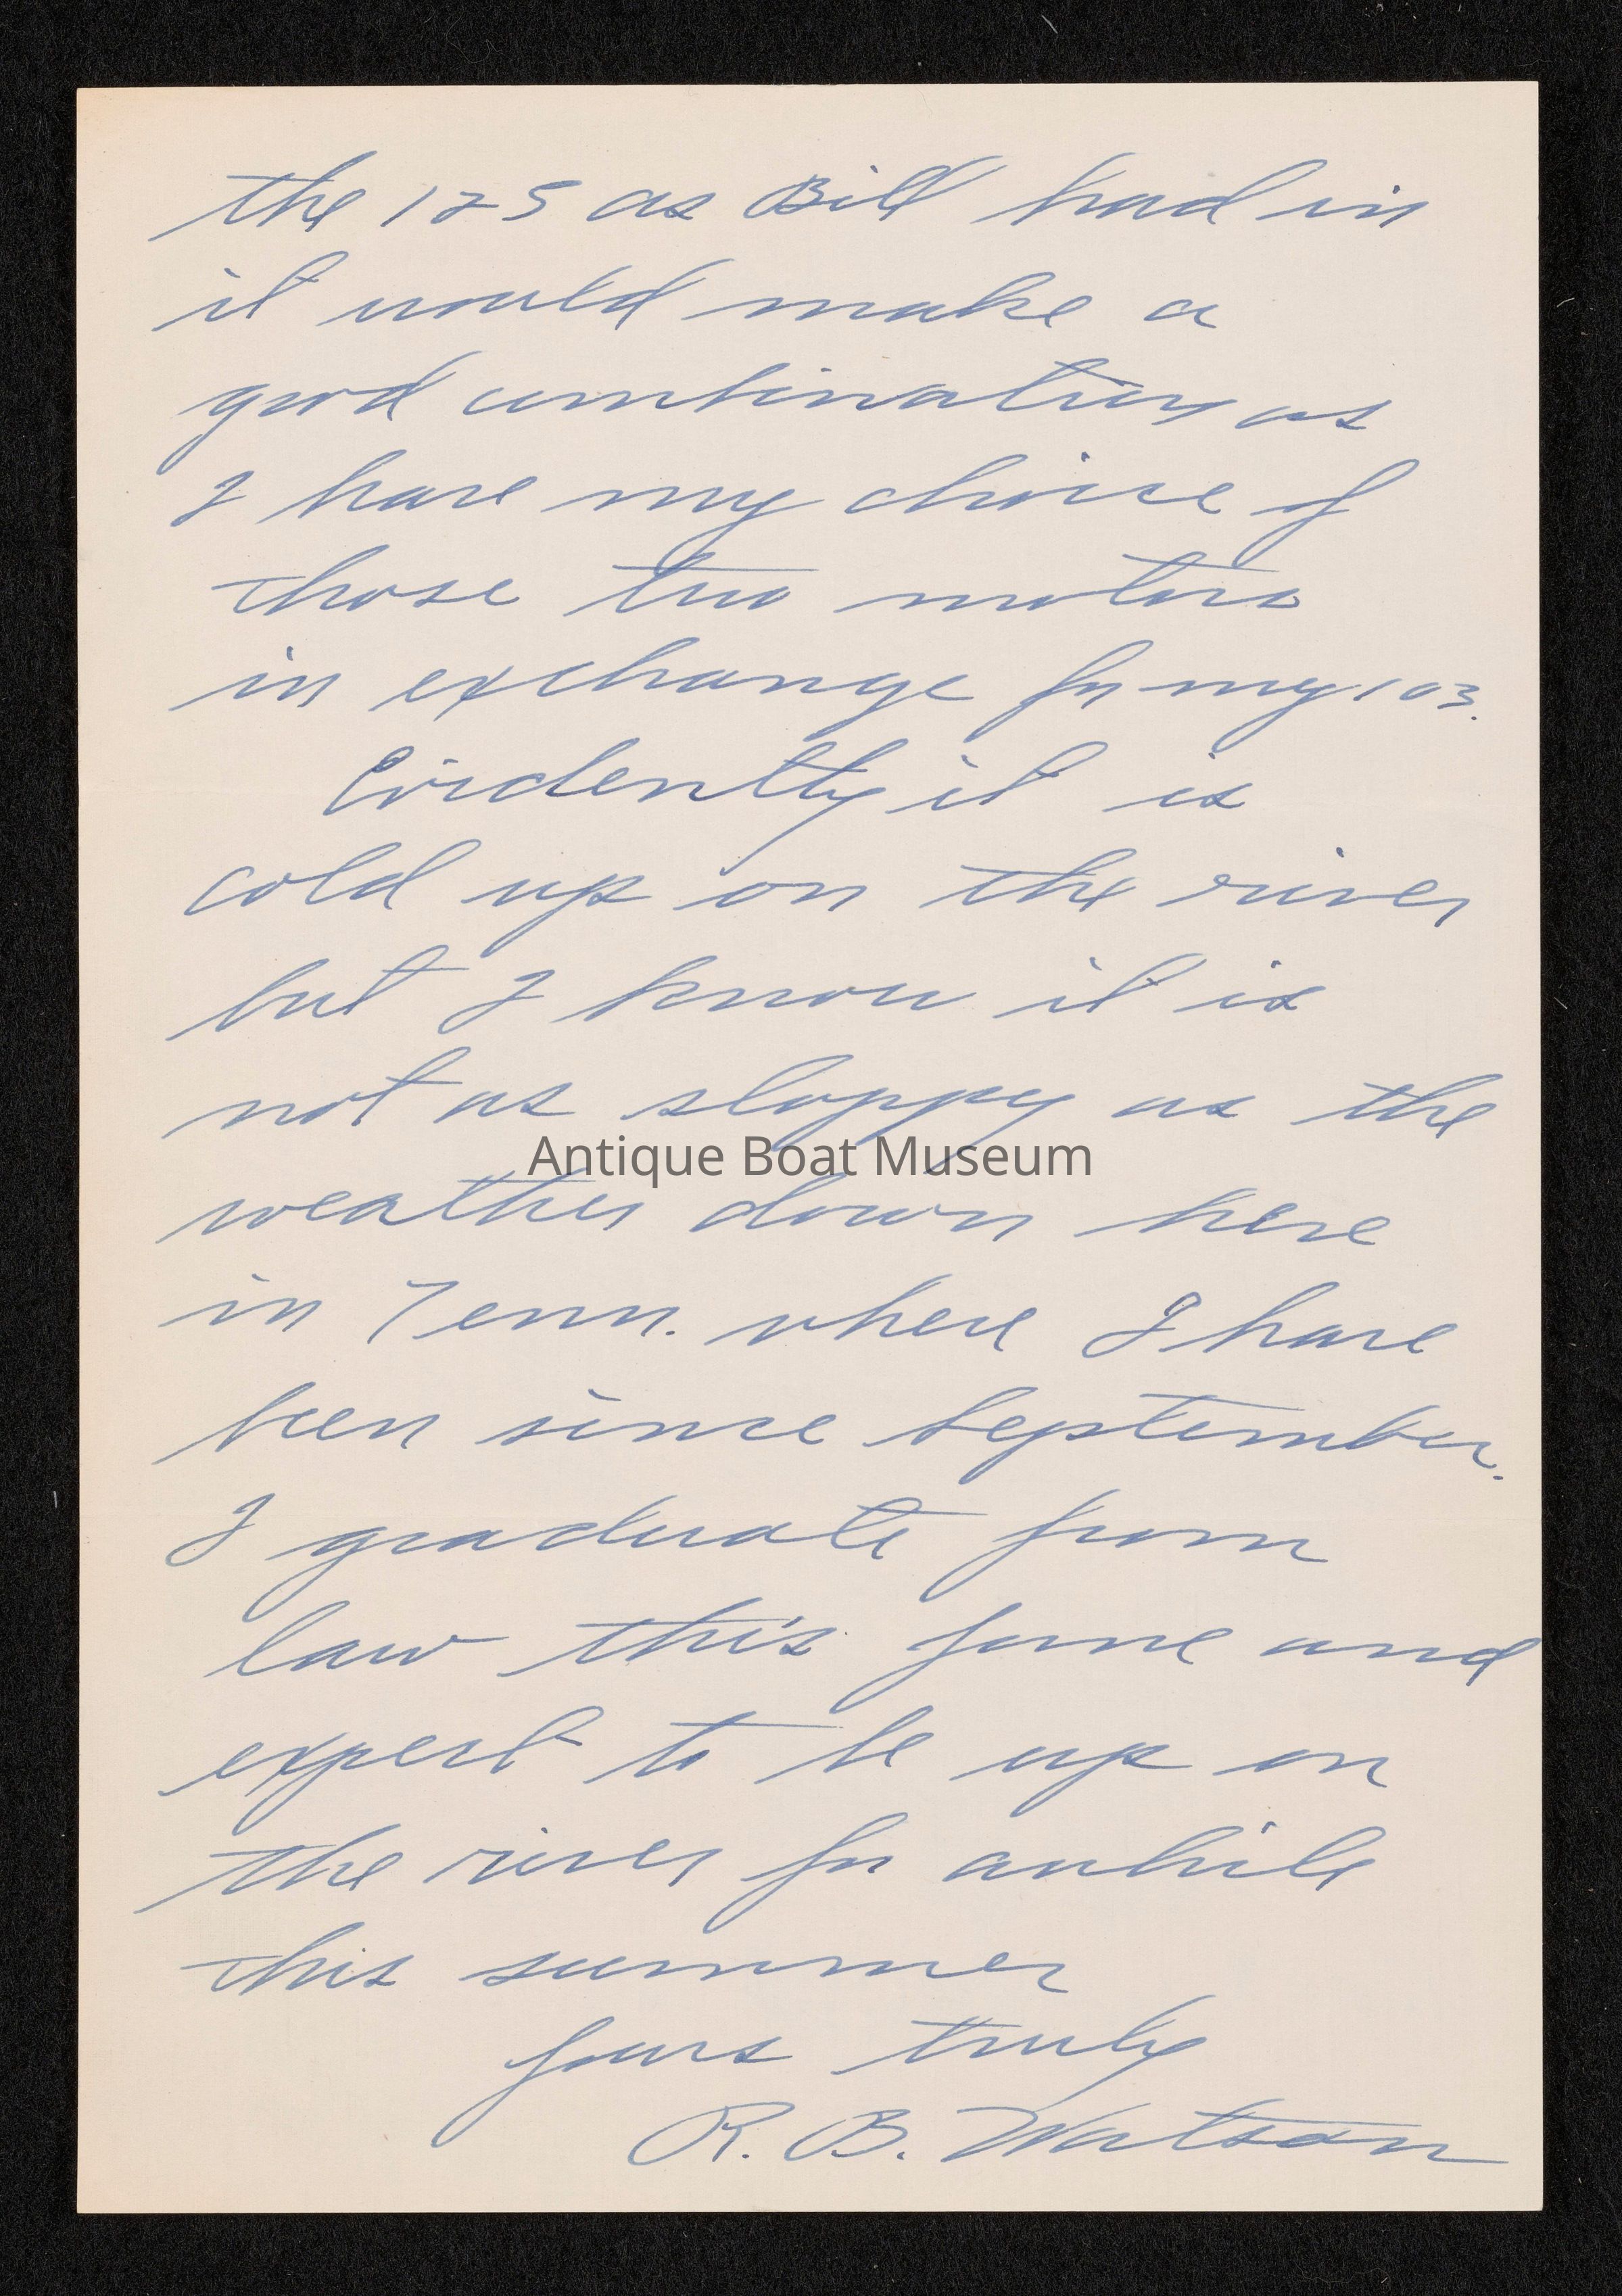 the 125 as Bill had in
it would make a
good combination as
I have my choice of
those two motors
in exchange for my 103.
Evidently it is
cold up on the river
but I know it is
not as sloppy as the
Antique Boat Museum
weather down here
in Tenn. where I have
been since September.
I graduate from
law this June and
expect to be up on
the river for awhile
this summer
Yours truly
R. B. Watson